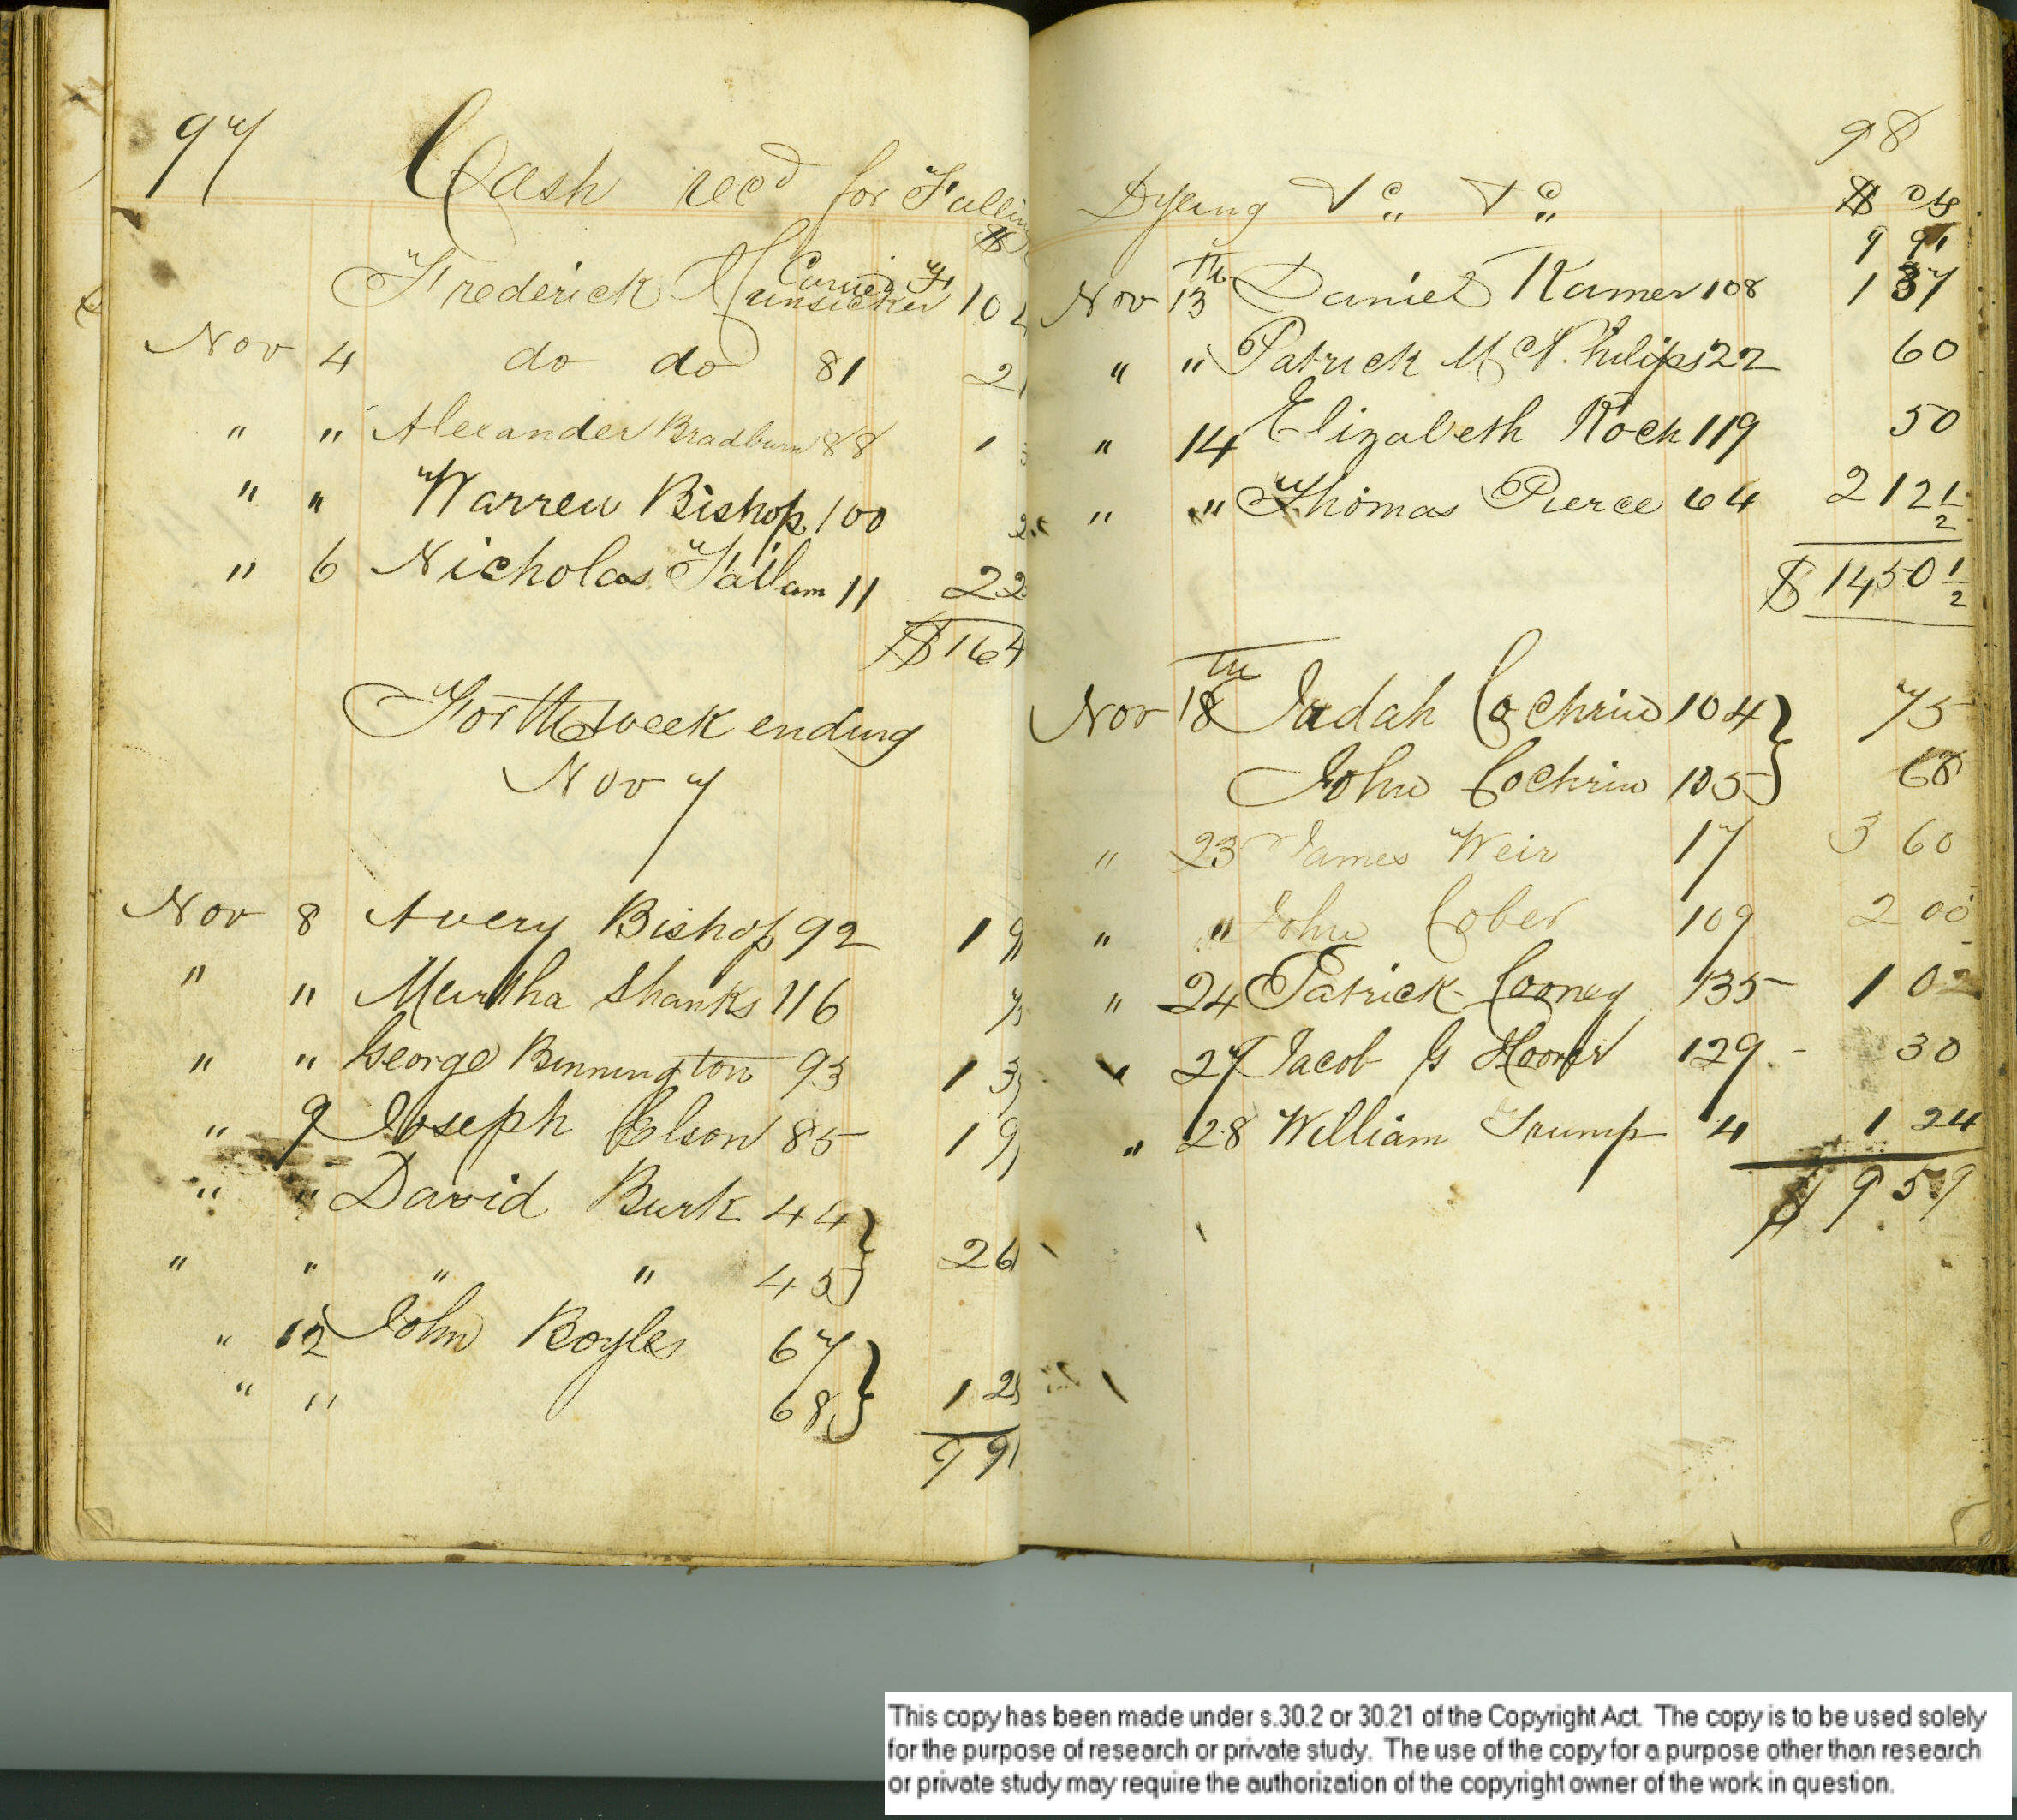 97 Cash rec'd for Fulling
$
Carried F'
Frederick Hunsicker 10
Nov 4 do do 81 2
" " Alexander Bradburn 88 1
" " Warren Bishop 100
" 6 Nicholas Tallam 11 2 2
$ 16 4
For the week ending
Nov 7
Nov 8 Avery Bishop 92 1 9
" " Martha Shanks 116
" " George Bennington 93 1 3
" 9 Joseph Elson 85 1 9
" " David Burk 44 }
" " " " 45 } 2 6
" 12 John Boyles 67 }
" " 68 } 1 2
9 9
98
Dyeing &c,, &c,, $ cts
9 91
Nov 13th Daniel Kamer 108 1 37
" " Patrick McPhilips 122 60
" 14 Elizabeth Koch 119 50
" " Thomas Pierce 64 2 12 1/2
$ 14,50 1/2
Nov 18th Judah Cochrin 104 } 75
John Cochrin 105 } 68
" 23 James Weir 17 3 60
" " John Cober 109 2 00
" 24 Patrick Cooney 135 1 02
" 27 Jacob G Hoover 129 30
" 28 William Trump 4 1 24
$ 9 59
This copy has been made under s.30.2 or 30.21 of the Copyright Act. The copy is to be used solely
for the purpose of research or private study. The use of the copy for a purpose other than research
or private study may require the authorization of the copyright owner of the work in question.